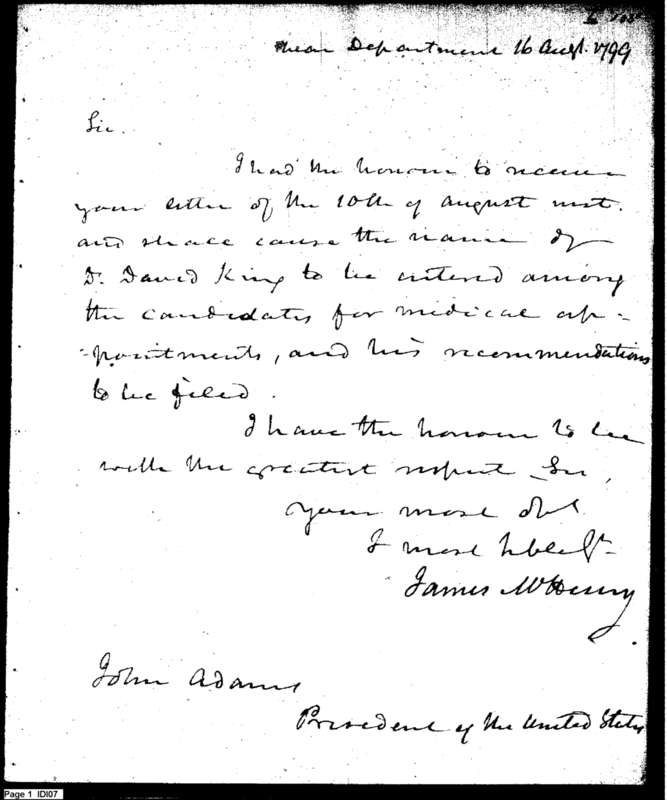 War Department 16 Augt. 1799
Sir.
I had the honour to receive
your letter of the 10th of August inst.
and shall cause the name of
Dr. David King to be entered among
the candidates for medical ap-
-pointments, and his recommendations
to be filed.
I have the honour to be
with the greatest respect Sir,
your most obt
& most hble St
James McHenry
John Adams
President of the United States
Page 1 IDI07